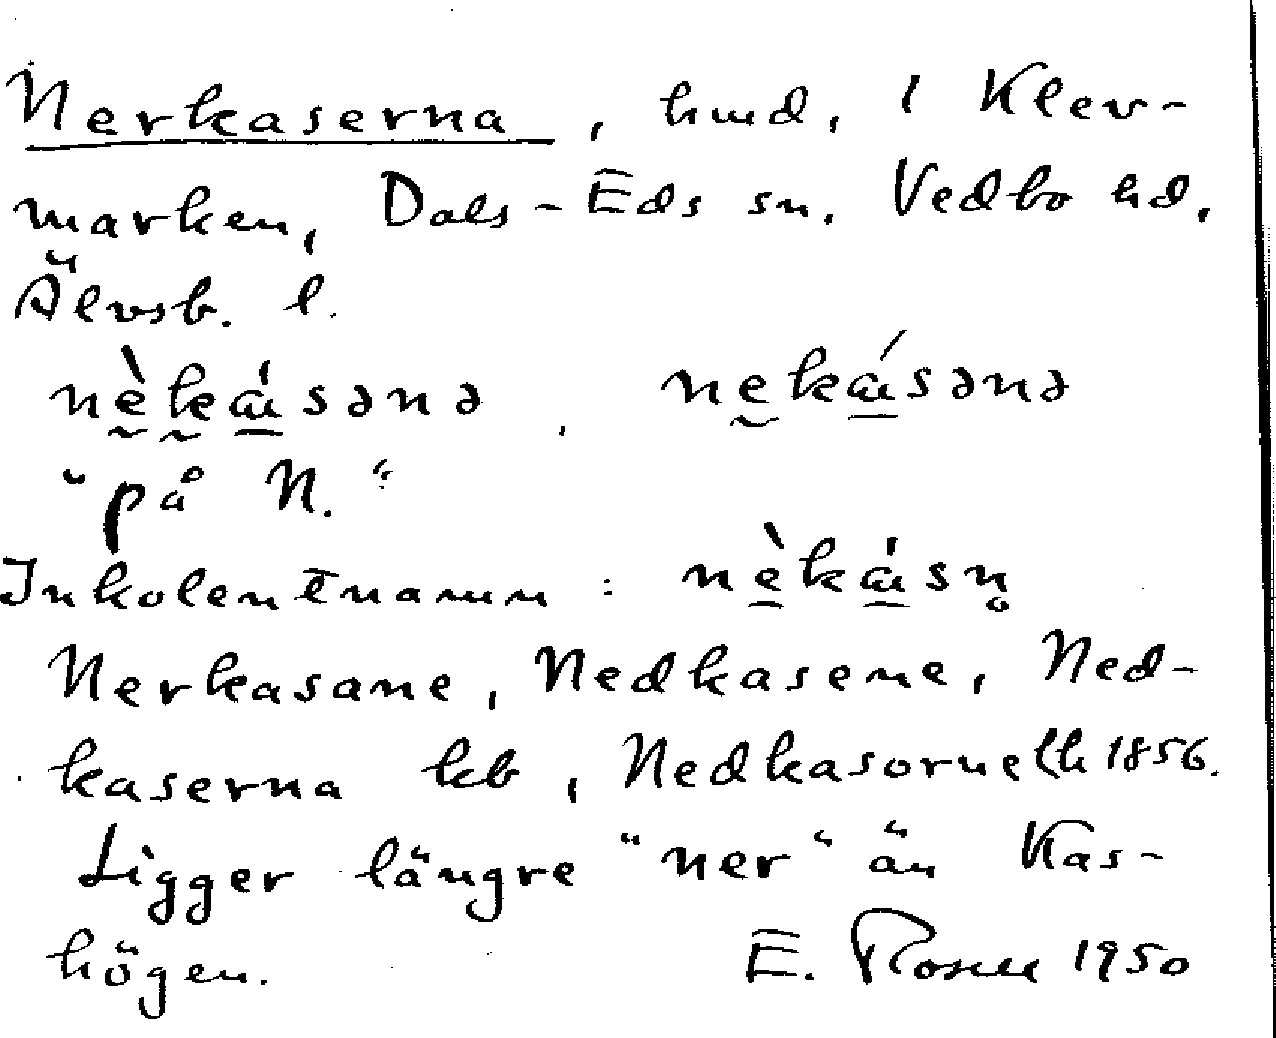 Nerkaserna, hmd, i Klev-
marken, Dals-Eds sn. Vedbo hd,
Älvsb. l.
nḛ̀k̰á̱sənə . nḛká̱sənə
"på N."
Inkolentnamn: nè̱ká̱sn̥
Nerkasane, Nedkasene, Ned-
kaserna kb, Nedkasorne 1856.
Ligger längre "ner" än Kas-
högen. E. Rosell 1950